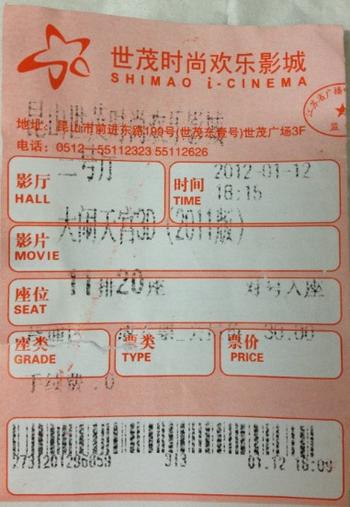 世茂时尚欢乐影城
SHIMAO i-CINEMA
昆山世茂时尚欢乐影城
地址：昆山市前进东路199号(世茂东壹号)世茂广场3F
电话：0512-55112323 55112626
影厅 HALL 二号厅
时间 TIME 2012-01-12 18:15
大闹天宫3D（2011版）
影片 MOVIE
11排20座 对号入座
座位 SEAT
30.00
座类 GRADE
票类 TYPE
票价 PRICE
2731201296059 313 01.12 18:09